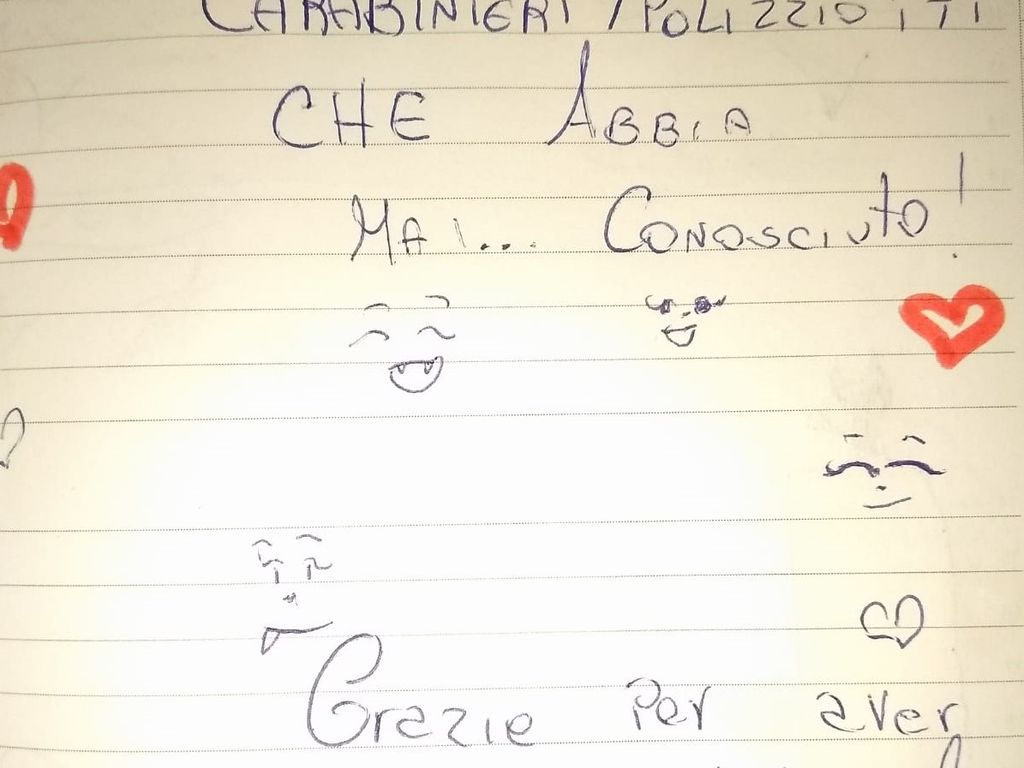 CARABINIERI / POLIZZIOTTI
CHE ABBIA
MAI... CONOSCIUTO!
Grazie Per aver